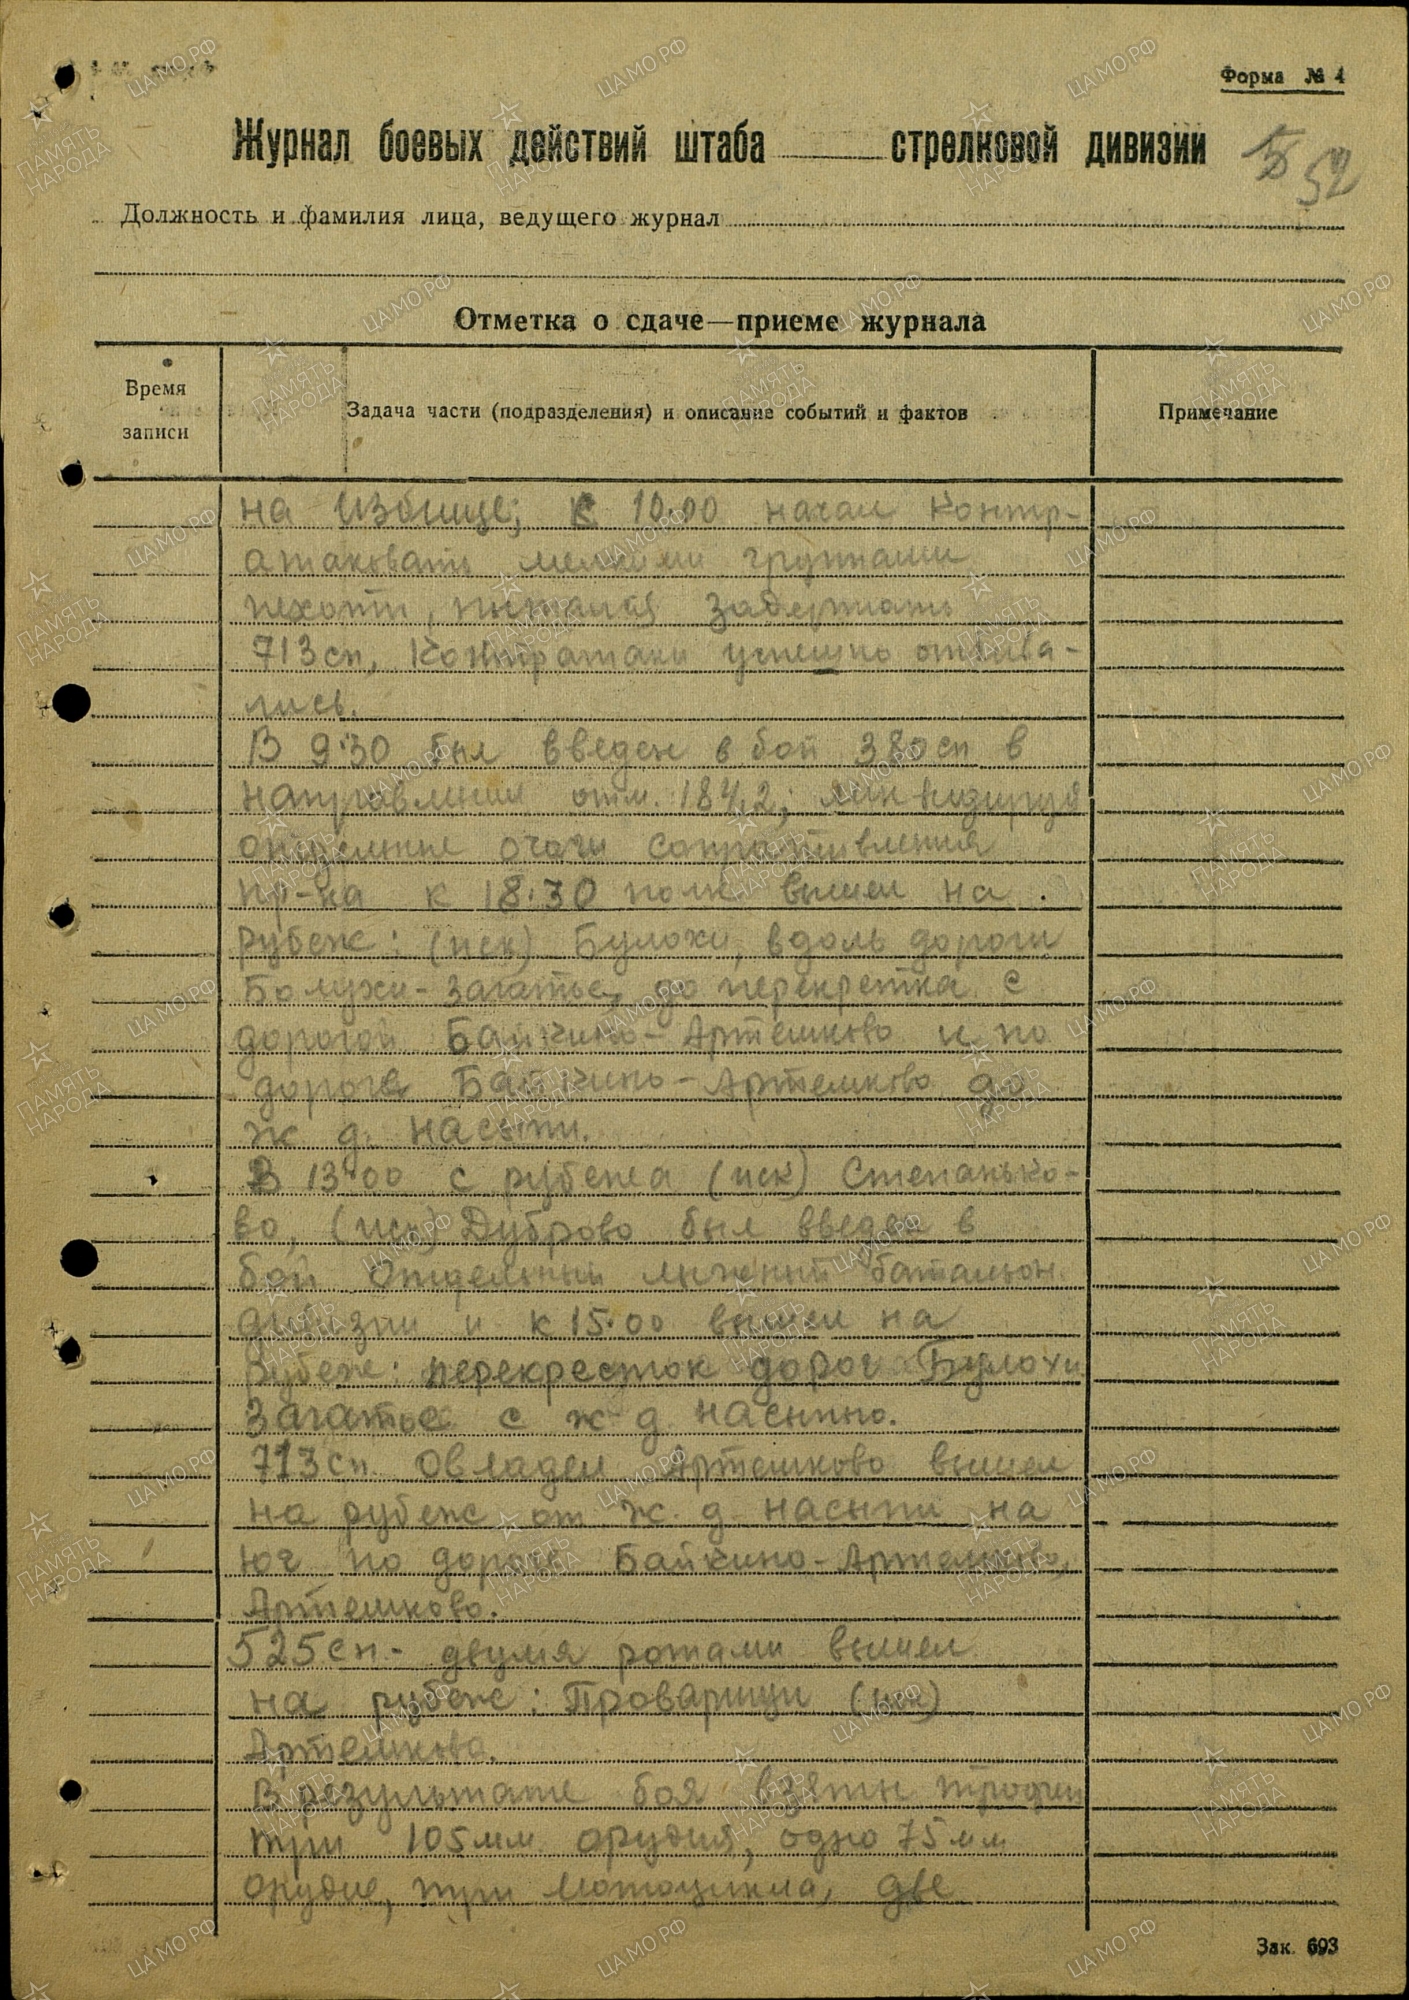 Форма № 4
Журнал боевых действий штаба стрелковой дивизии
5 52
Должность и фамилия лица, ведущего журнал
Отметка о сдаче—приеме журнала
Время записи
Задача части (подразделения) и описание событий и фактов
Примечание
на Избище; к 10.00 начал контр-
атаковать мелкими группами
пехоты, пытался задержать
713сп, Контратаки успешно отбива-
лись.
В 9.30 был введен в бой 380сп в
направлении отм. 184,2; ликвидируя
отдельные очаги сопротивления
пр-ка к 18.30 полк вышел на
рубеж: (иск) Булохи, вдоль дороги
Болухи-Загатье, до перекретка с
дорогой Байкино-Артешково и по
дороге Байкино-Артешково до
ж д. насыпи.
В 13.00 с рубежа (иск) Степанько-
во, (иск) Дуброво был введен в
бой Отдельный лыжный батальон
дивизии и к 15.00 вышел на
Рубеж: перекресток дорог Булохи
Загатье с ж-д насыпью.
713сп овладел Артешково вышел
на рубеж от ж.д. насыпи на
юг по дороге Байкино-Артешково,
Артешково.
525сп- двумя ротами вышел
на рубеж: Проварищи (иск)
Артешково.
В результате боя взяты трофеи
три 105мм орудия, одно 75мм
орудие, три мотоцикла, две
Зак. 693
ПАМЯТЬ НАРОДА
ЦАМО.РФ